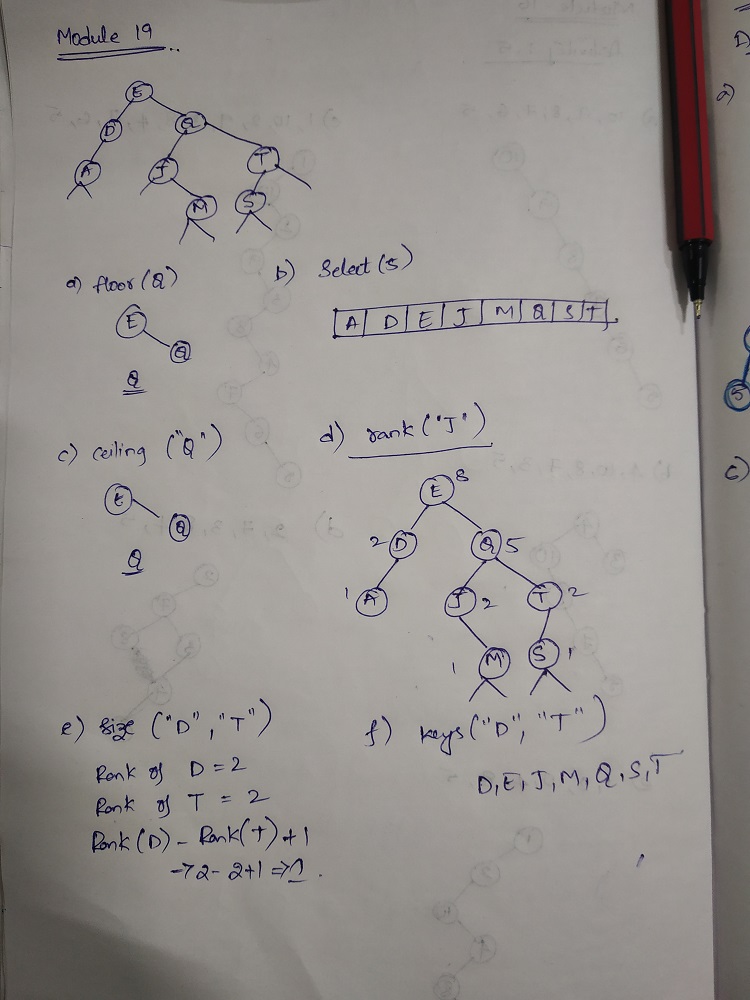 Module 19
E
D Q
A J T
M S
a) floor(Q)
E
Q
Q
b) Select(5)
A D E J M Q S T
c) ceiling ("Q")
E
Q
Q
d) rank ("J")
E 8
2 D Q 5
1 A J 2 T 2
1 M S 1
e) Size ("D", "T")
Rank of D = 2
Rank of T = 2
Rank(D) - Rank(T) + 1
→ 2 - 2 + 1 => 1.
f) keys("D", "T")
D, E, J, M, Q, S, T
D)
a)
5
c)